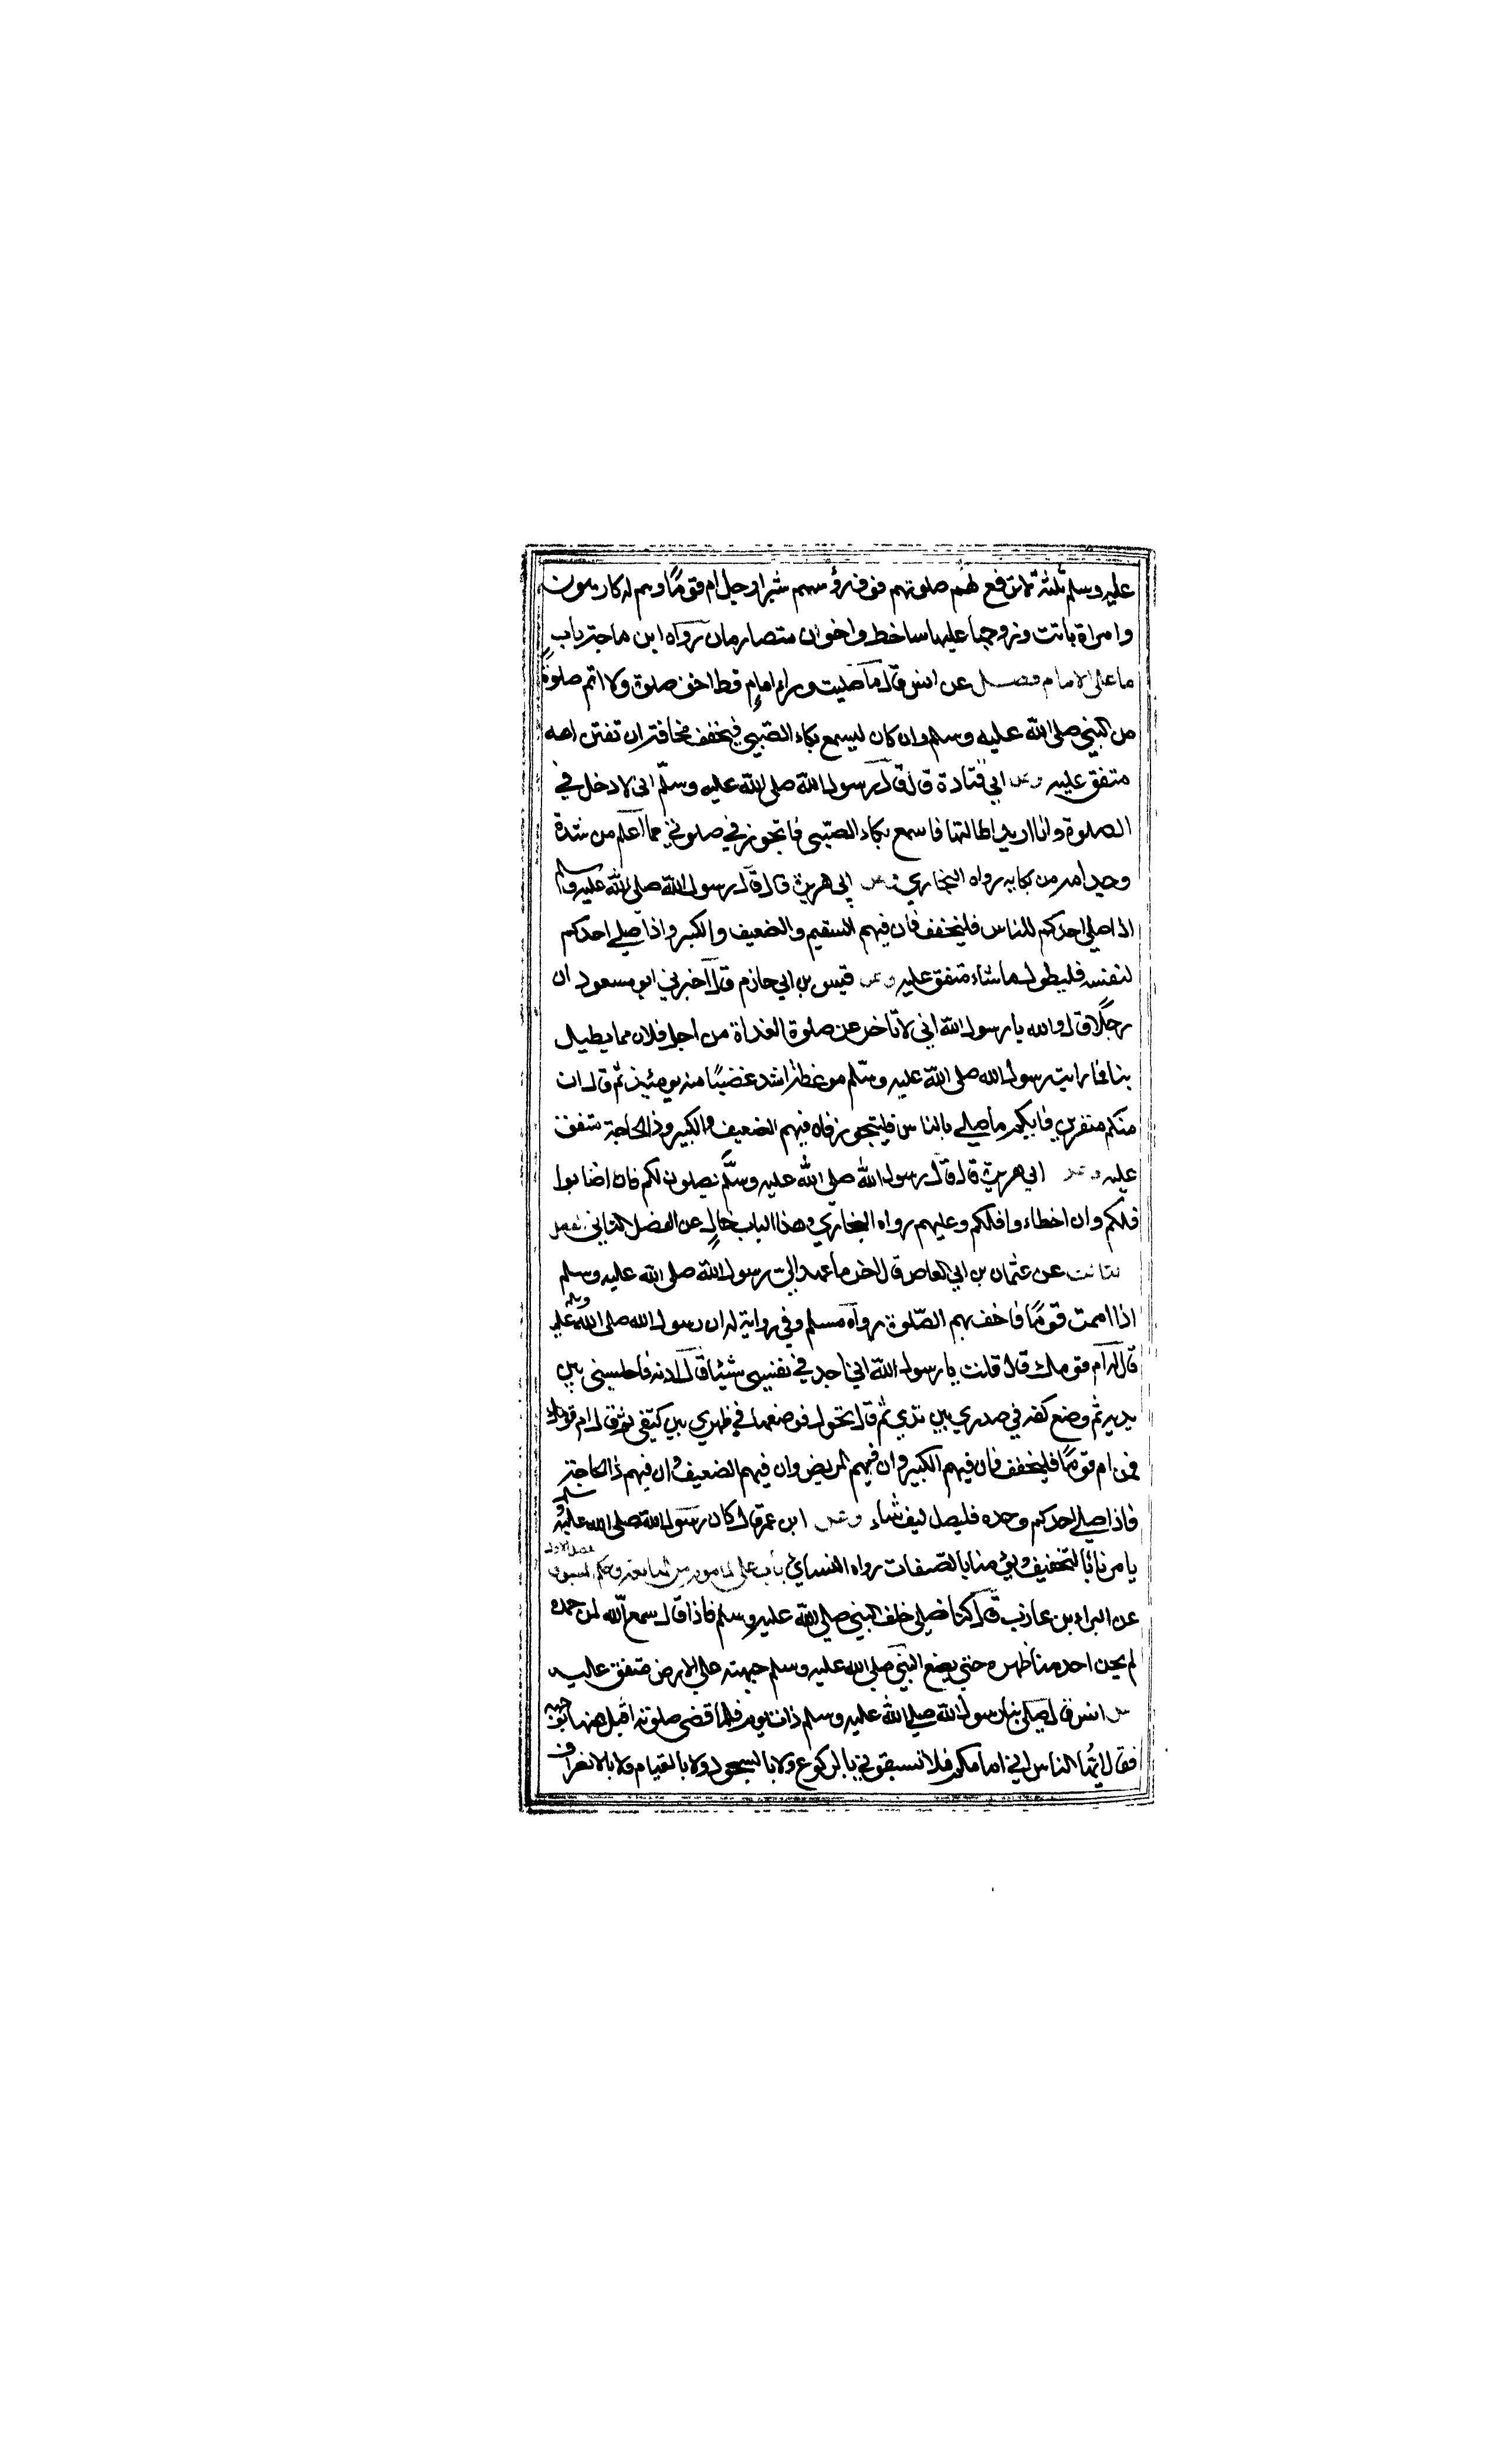 عليه وسلم ثلثة لا ترفع لهم صلوتهم فوق رؤسهم شبرا رجل ام قوما وهم له كارهون
وامراة باتت وزوجها عليها ساخط واخوان متصارمان رواه ابن ماجة باب
ما على الامام فصل عن انس قال ما صليت وراء امام قط اخف صلوة ولا اتم صلوة
من النبي صلى الله عليه وسلم وان كان ليسمع بكاء الصبي فيخفف مخافة ان تفتن امه
متفق عليه وعن ابي قتادة قال قال رسول الله صلى الله عليه وسلم اني لادخل في
الصلوة وانا اريد اطالتها فاسمع بكاء الصبي فاتجوز في صلوتي مما اعلم من شدة
وجد امه من بكايه رواه البخاري وعن ابي هريرة قال قال رسول الله صلى الله عليه وسلم
اذا صلى احدكم للناس فليخفف فان فيهم السقيم والضعيف والكبير واذا صلى احدكم
لنفسه فليطول ما شاء متفق عليه وعن قيس بن ابي حازم قال اخبرني ابو مسعود ان
رجلا قال والله يا رسول الله اني لاتاخر عن صلوة الغداة من اجل فلان مما يطيل
بنا فما رايت رسول الله صلى الله عليه وسلم موعظة اشد غضبًا منه يومئذ ثم قال ان
منكم منفرين فايكم ما صلى بالناس فليتجوز فان فيهم الضعيف والكبير وذا الحاجة متفق
عليه وعن ابي هريرة قال قال رسول الله صلى الله عليه وسلم يصلون لكم فان اصابوا
فلكم وان اخطاءوا فلكم وعليهم رواه البخاري وهذا الباب خالٍ عن الفصل الثاني فصل
ثالث عن عثمان بن ابي العاص قال اخر ما عهد الي رسول الله صلى الله عليه وسلم
اذا اممت قومًا فاخف بهم الصلوة رواه مسلم وفي رواية له ان رسول الله صلى الله عليه وسلم
قال له ام قومك قال قلت يا رسول الله اني اجد في نفسي شيئا قال ادنه فاجلسني بين
يديه ثم وضع كفه في صدري بين ثدي ثم قال تحول فوضعها في ظهري بين كتفي ثم قال ام قومك
فمن ام قومًا فليخفف فان فيهم الكبير وان فيهم المريض وان فيهم الضعيف وان فيهم ذا الحاجة
فاذا صلى احدكم وحده فليصل كيف شاء وعن ابن عمر قال كان رسول الله صلى الله عليه وسلم
يامرنا بالتخفيف ويؤمنا بالصافات رواه النسائي باب على الماموم من المتابعة وحكم المسبوق فصل الاول
عن البراء بن عازب قال كنا نصلي خلف النبي صلى الله عليه وسلم فاذا قال سمع الله لمن حمده
لم يحن احد منا ظهره حتى يضع النبي صلى الله عليه وسلم جبهته على الارض متفق عليه
عن انس قال صلى بنا رسول الله صلى الله عليه وسلم ذات يوم فلما قضى صلوته اقبل علينا بوجهه
فقال ايها الناس اني امامكم فلا تسبقوني بالركوع ولا بالسجود ولا بالقيام ولا بالانصراف